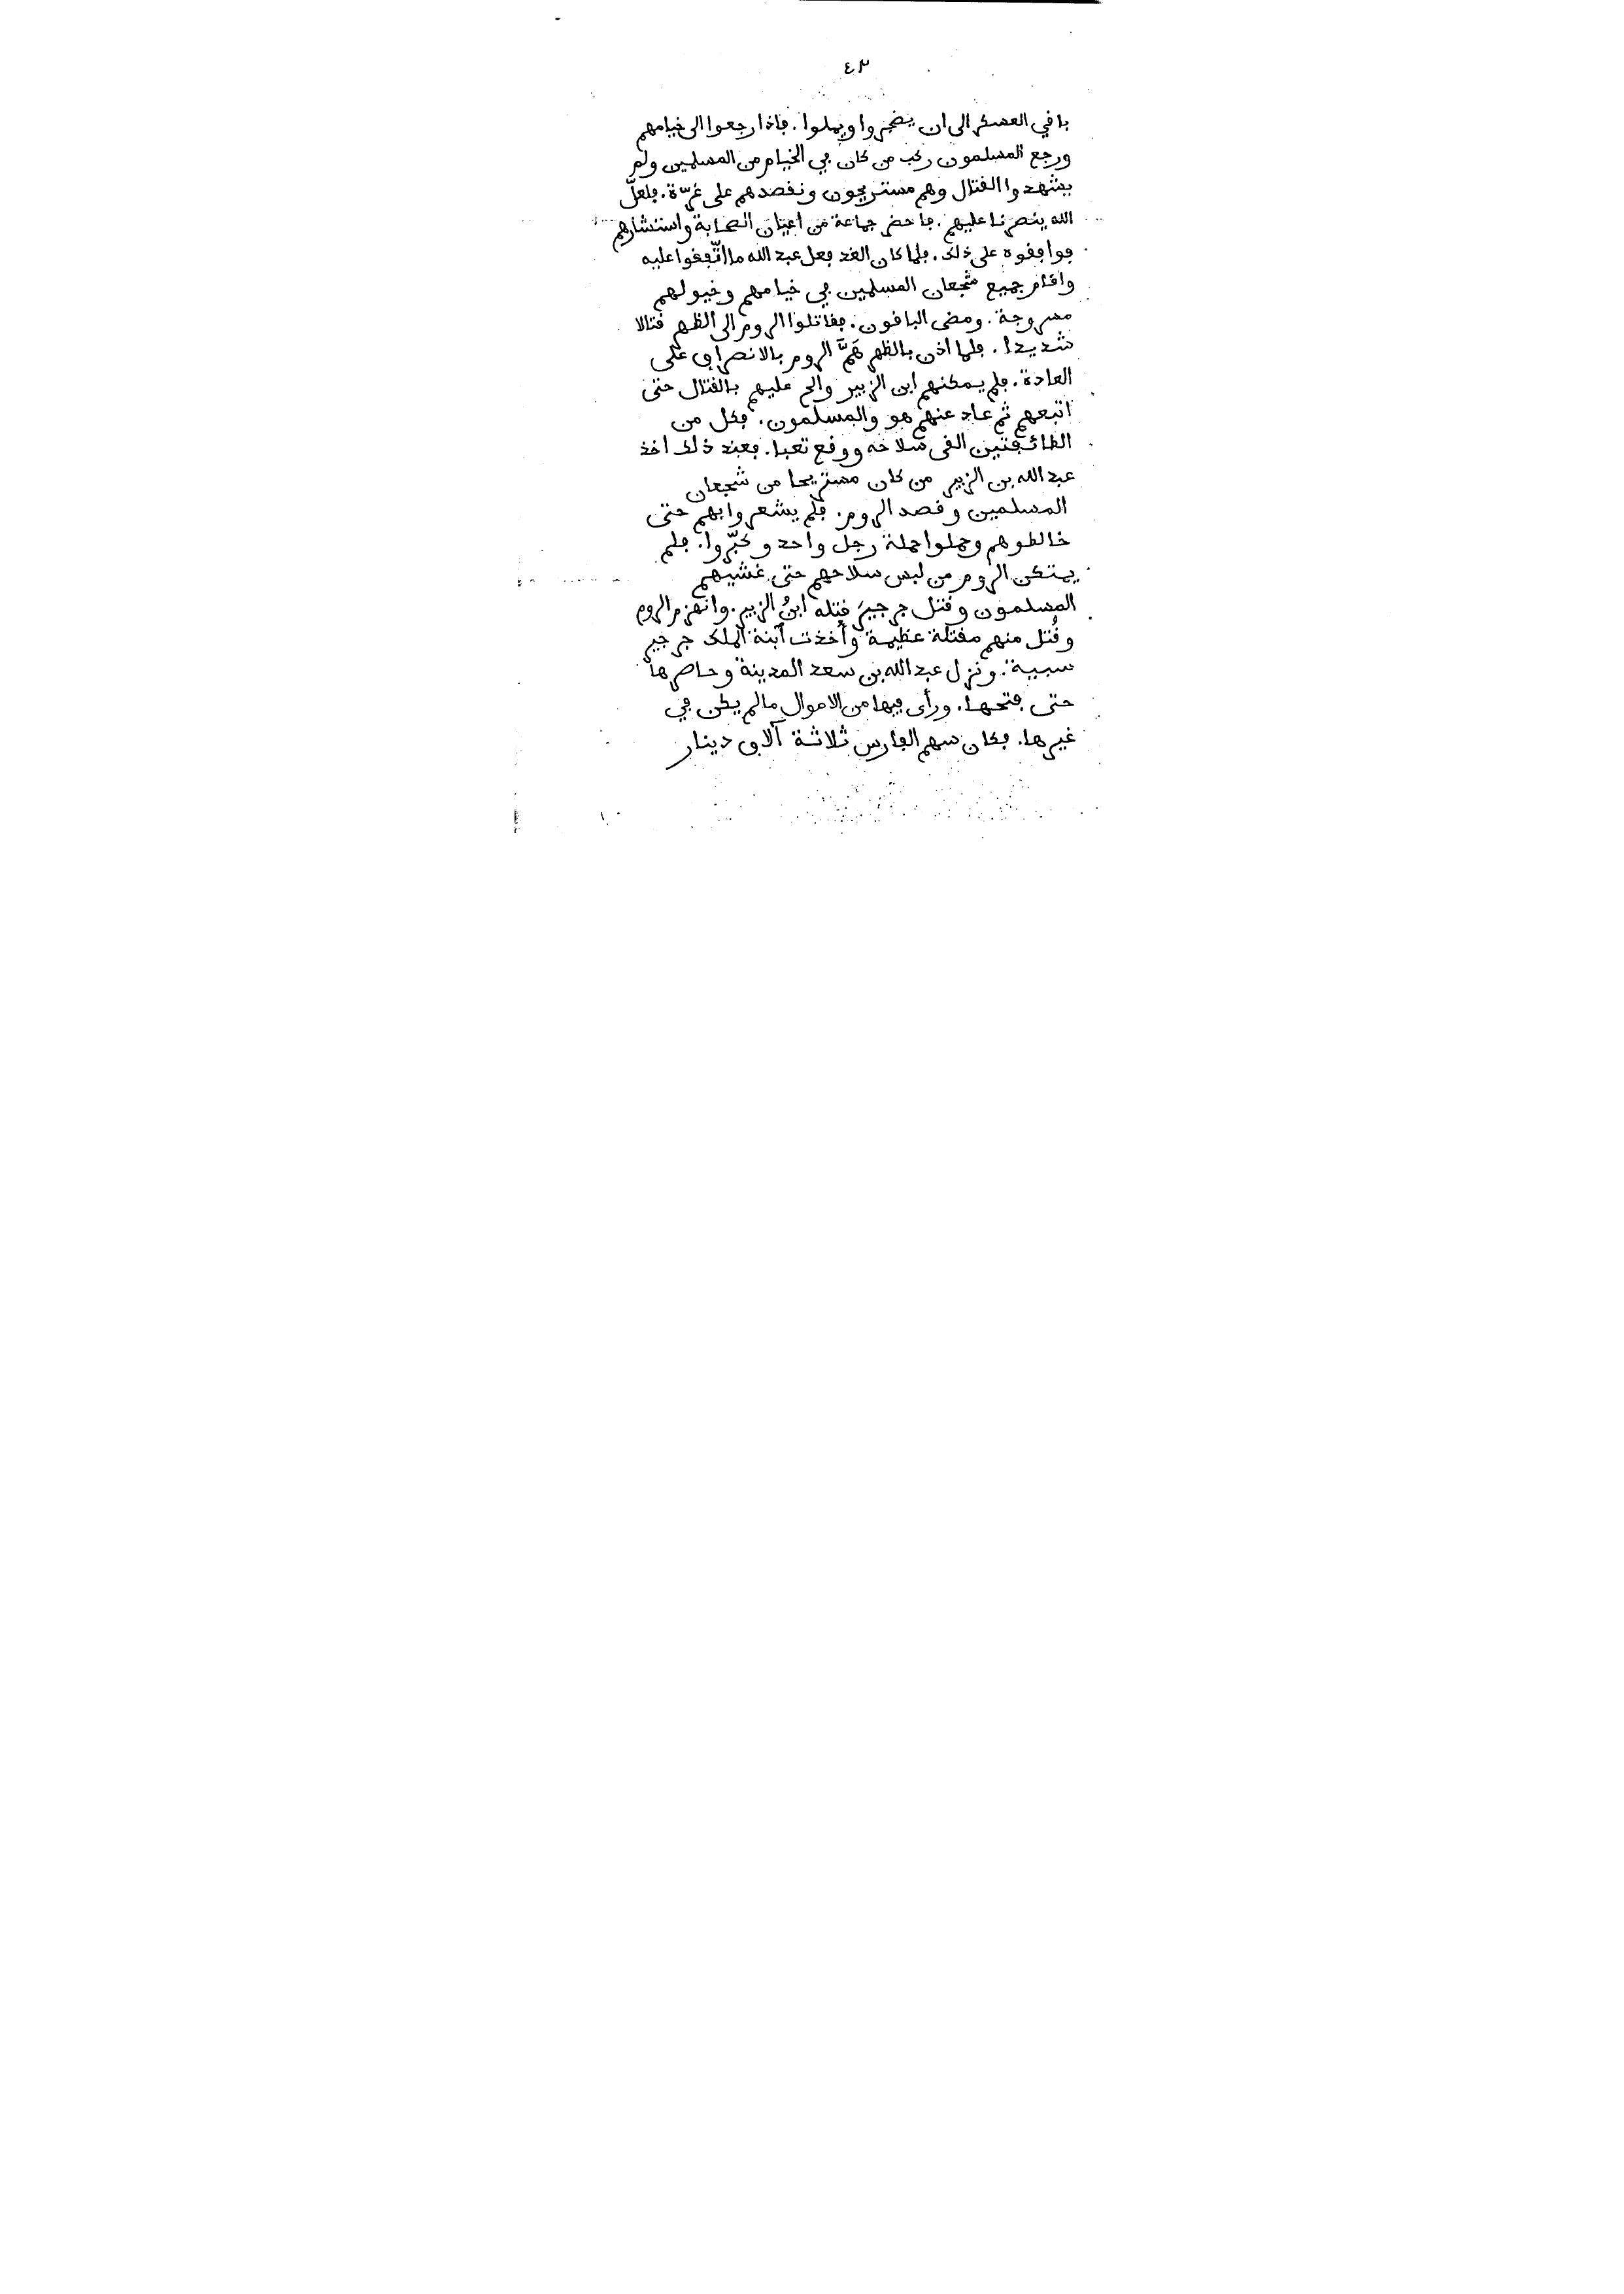 ٤٣
باقي العسكر الى ان يضجروا ويملوا. فاذا رجعوا الى خيامهم
ورجع المسلمون ركب من كان في الخيام من المسلمين ولم
يشهدوا القتال وهم مستريحون ونقصدهم على غرّة. فلعلّ
الله ينصرنا عليهم. فاحضر جماعة من اعيان الصحابة واستشارهم
فوافقوه على ذلك. فلما كان الغد فعل عبد الله ما اتّفقوا عليه
واقام جميع شجعان المسلمين في خيامهم وخيولهم
مسروجة. ومضى الباقون. فقاتلوا الروم الى الظهر قتالا
شديدا. فلما اذن بالظهر همَّ الروم بالانصراف على
العادة. فلم يمكنهم ابن الزبير والح عليهم بالقتال حتى
اتبعهم ثم عاد عنهم هو والمسلمون. فكل من
الطائفتين القى سلاحه ووقع تعبا. فعند ذلك اخذ
عبد الله بن الزبير من كان مستريحا من شجعان
المسلمين وقصد الروم. فلم يشعروا بهم حتى
خالطوهم وحملوا حملة رجل واحد وكبّروا. فلم
يمتكن الروم من لبس سلاحهم حتى غشيهم
المسلمون وقتل جرجيرَ قتله ابنُ الزبير. وانهزم الروم
وقُتل منهم مقتلة عظيمة وأخذت ابنة الملك جرجير
سبية. ونزل عبد الله بن سعد المدينة وحاصرها
حتى فتحها. ورأى فيها من الاموال ما لم يكن في
غيرها. فكان سهم الفارس ثلاثة آلاف دينار